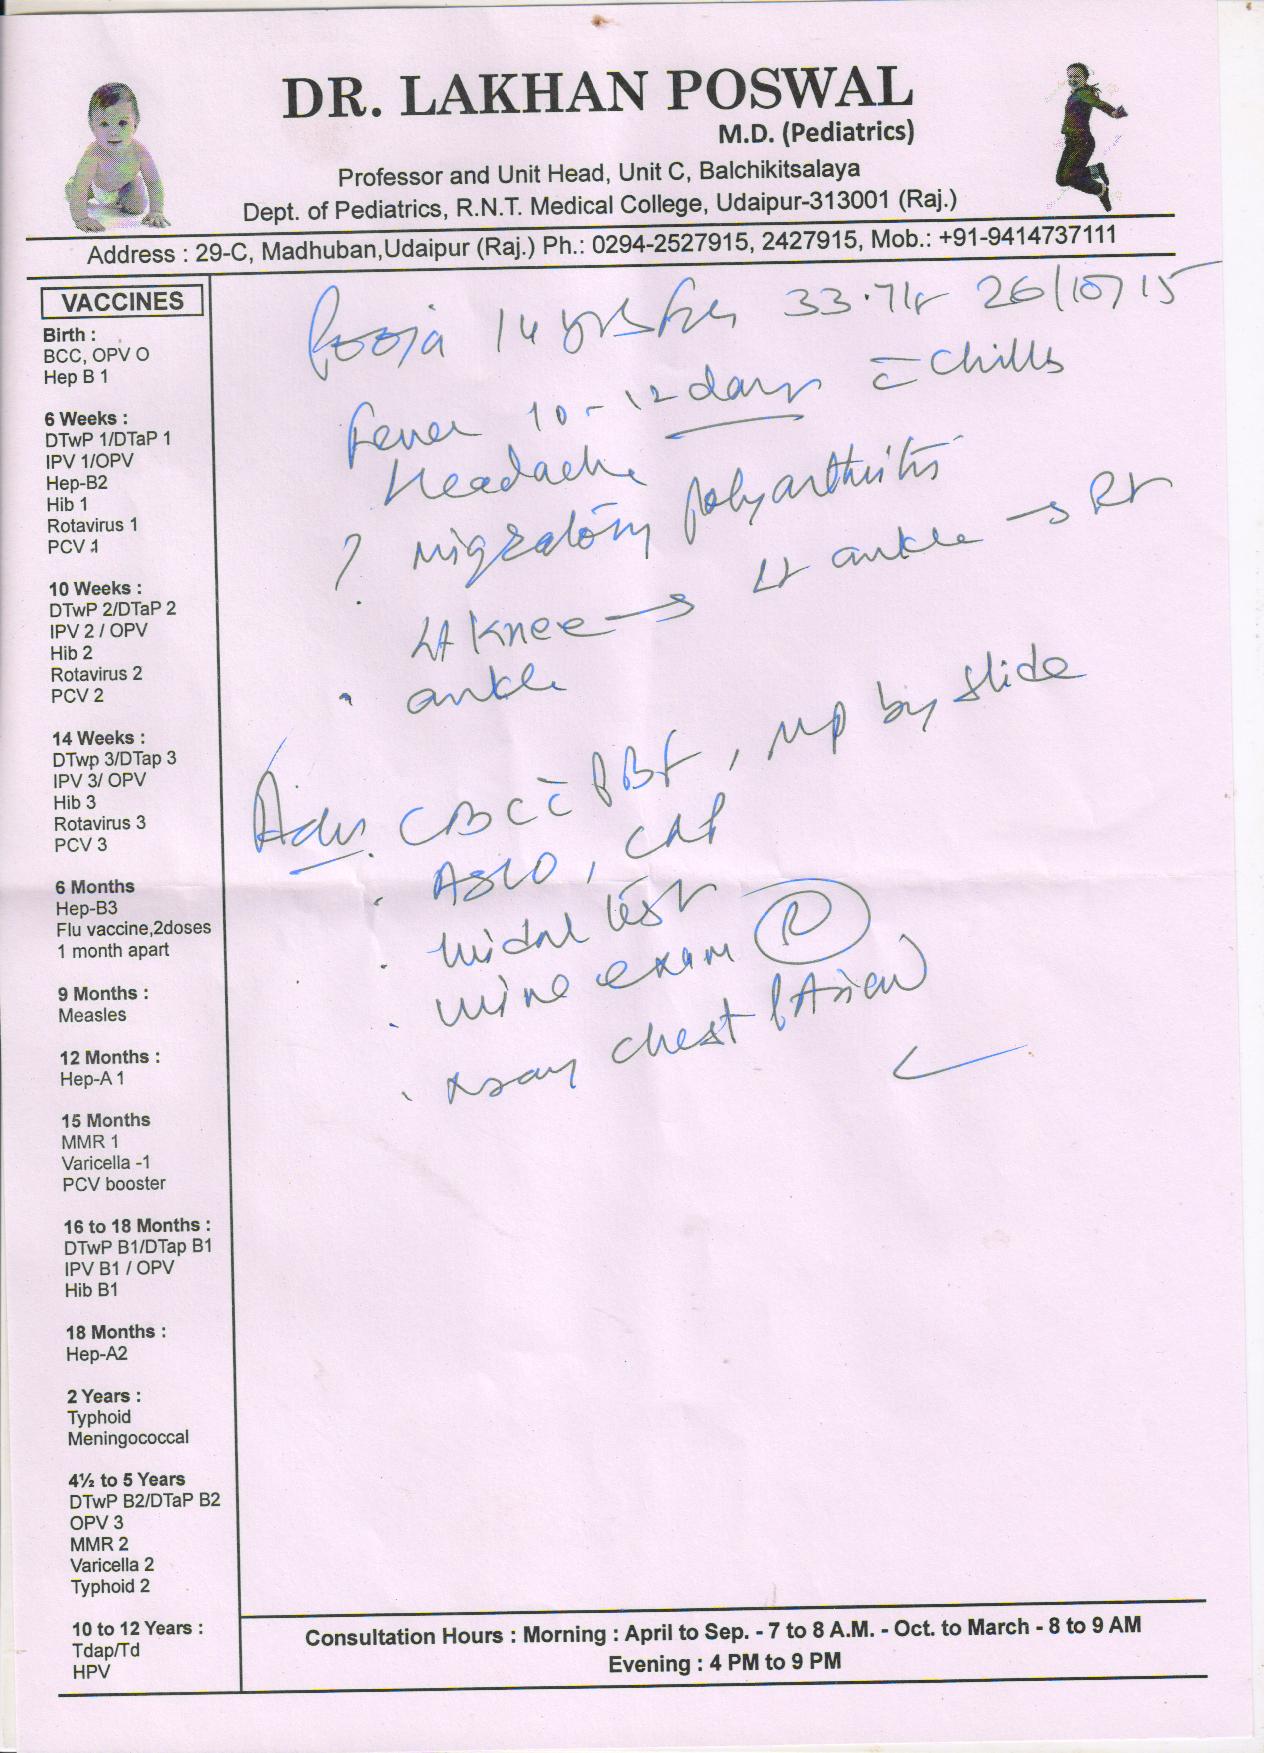 DR. LAKHAN POSWAL
M.D. (Pediatrics)
Professor and Unit Head, Unit C, Balchikitsalaya
Dept. of Pediatrics, R.N.T. Medical College, Udaipur-313001 (Raj.)
Address : 29-C, Madhuban,Udaipur (Raj.) Ph.: 0294-2527915, 2427915, Mob.: +91-9414737111
VACCINES
Birth :
BCC, OPV O
Hep B 1
6 Weeks :
DTwP 1/DTaP 1
IPV 1/OPV
Hep-B2
Hib 1
Rotavirus 1
PCV 1
10 Weeks :
DTwP 2/DTaP 2
IPV 2 / OPV
Hib 2
Rotavirus 2
PCV 2
14 Weeks :
DTwp 3/DTap 3
IPV 3/ OPV
Hib 3
Rotavirus 3
PCV 3
6 Months
Hep-B3
Flu vaccine,2doses
1 month apart
9 Months :
Measles
12 Months :
Hep-A 1
15 Months
MMR 1
Varicella -1
PCV booster
16 to 18 Months :
DTwP B1/DTap B1
IPV B1 / OPV
Hib B1
18 Months :
Hep-A2
2 Years :
Typhoid
Meningococcal
4½ to 5 Years
DTwP B2/DTaP B2
OPV 3
MMR 2
Varicella 2
Typhoid 2
10 to 12 Years :
Tdap/Td
HPV
Pooja 14 yrs 26/10/15
Fever 10-12 days c̄ chills
Headache
? Migratory polyarthritis
Lt Knee → Lt ankle → Rt
ankle
Adv. CBC c̄ PBF, MP by slide
ASLO, CRP
Widal test
urine exam (R)
xray chest PA view
Consultation Hours : Morning : April to Sep. - 7 to 8 A.M. - Oct. to March - 8 to 9 AM
Evening : 4 PM to 9 PM